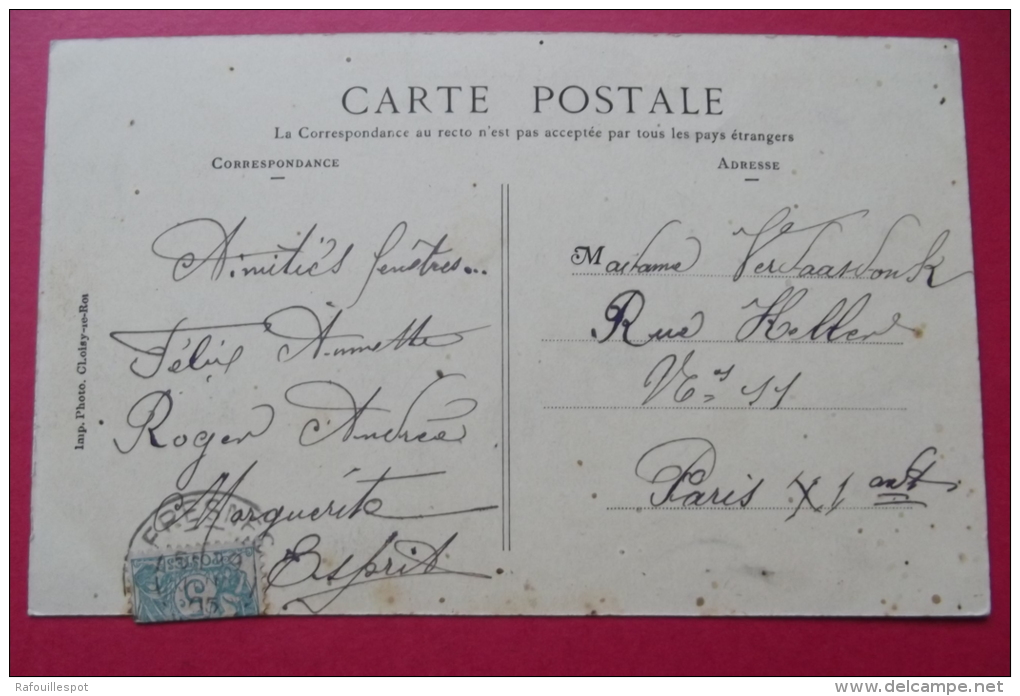 CARTE POSTALE
La Correspondance au recto n'est pas acceptée par tous les pays étrangers
CORRESPONDANCE
ADRESSE
Amitiés
Félix Annette
Roger Andrée
Marguerite
Esprit
Madame Verdaasdonk
Rue Keller
Nos 11
Paris XI
Imp. Photo. Choisy-le-Roi
5
Rafouillespot
www.delcampe.net